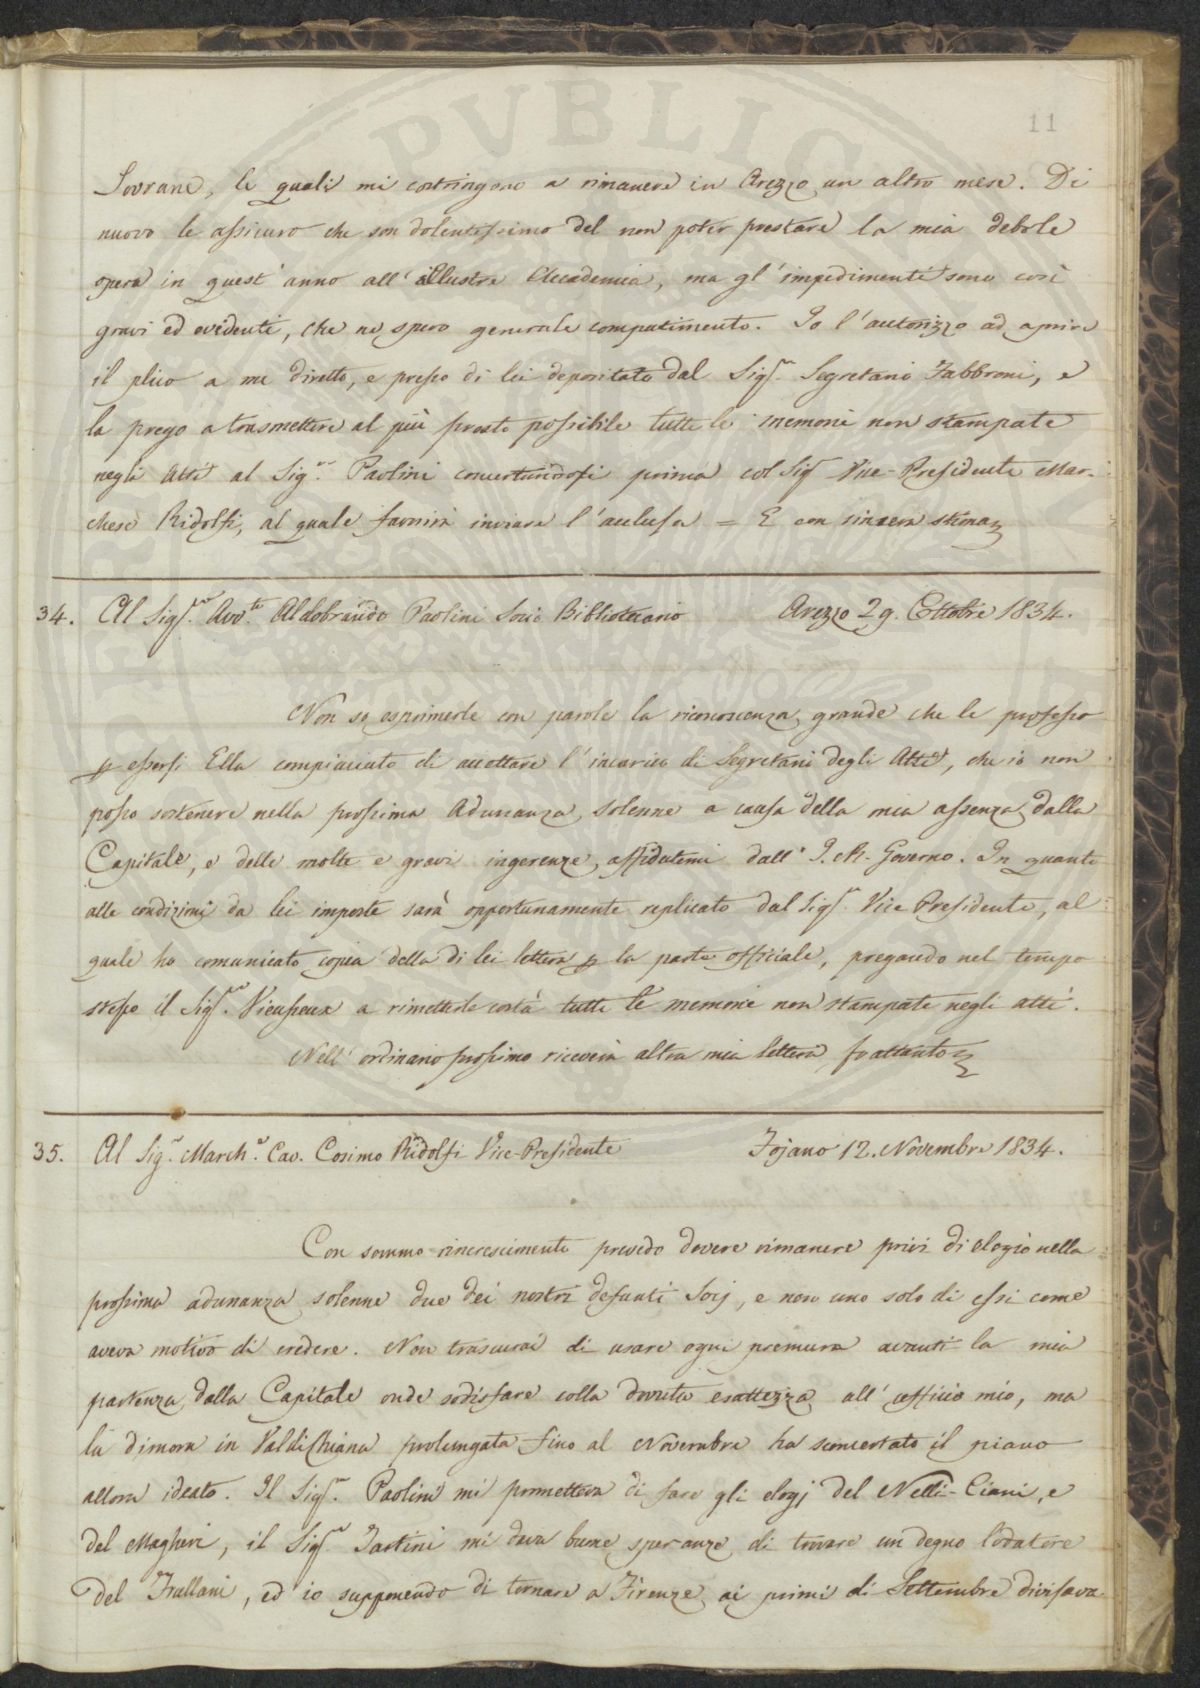 PVBLIC
11
Sovrane, le quali mi costringono a rimanere in Arezzo un altro mese. Di
nuovo le assicuro che son dolentissimo del non poter prestare la mia debole
opera in quest'anno all'illustre Accademia, ma gl'impedimenti sono così
gravi ed evidenti, che ne spero generale compatimento. Io l'autorizzo ad aprire
il plico a me diretto, e presso di lei depositato dal Sigr. Segretario Fabbroni, e
la prego a trasmettere al più presto possibile tutte le memorie non stampate
negli Atti al Sigr. Paolini concertandosi prima col Sigr Vice-Presidente Mar-
chese Ridolfi, al quale favorirà inviare l'acclusa = E con sincera stima
34. Al Sigr. Avvte. Aldobrando Paolini Socio Bibliotecario Arezzo 29. Ottobre 1834.
Non so esprimerle con parole la riconoscenza grande che le professo
p essersi Ella compiaciuto di accettare l'incarico di Segretario degli Atti, che io non
posso sostenere nella prossima Adunanza solenne a causa della mia assenza dalla
Capitale, e delle molte e gravi ingerenze affidatemi dall'I. e R. Governo. In quanto
alle condizioni da lei imposte sarà opportunamente replicato dal Sigr. Vice Presidente, al
quale ho comunicato copia della di lei lettera p la parte officiale, pregando nel tempo
stesso il Sigr. Vieusseux a rimetterle costà tutte le memorie non stampate negli atti.
Nell'ordinario prossimo riceverà altra mia lettera, frattanto
35. Al Sigr. Marche. Cav. Cosimo Ridolfi Vice-Presidente Fojano 12. Novembre 1834.
Con sommo rincrescimento prevedo dovere rimanere privi di elogio nella
prossima adunanza solenne due dei nostri defunti Socj, e non uno solo di essi come
aveva motivo di credere. Non trascurai di usare ogni premura avanti la mia
partenza dalla Capitale onde sodisfare colla dovuta esattezza all'officio mio, ma
la dimora in Valdichiana prolungata fino al Novembre ha sconcertato il piano
allora ideato. Il Sigr. Paolini mi prometteva di fare gli elogj del Nelli-Ciani, e
del Magheri, il Sigr. Tartini mi dava buone speranze di trovare un degno lodatore
del Frullani, ed io supponendo di tornare a Firenze ai primi di Settembre divisava